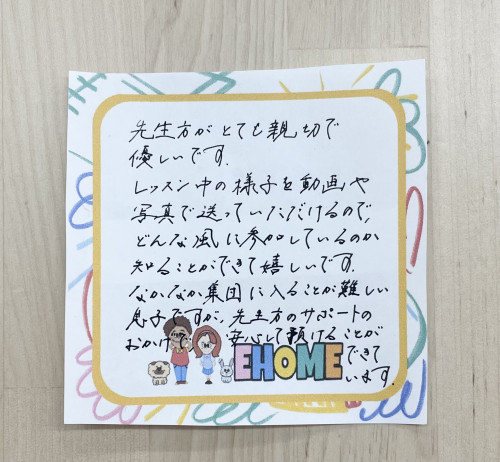 先生方がとても親切で
優しいです.
レッスン中の様子を動画や
写真で送っていただけるので,
どんな風に参加しているのか
知ることができて嬉しいです.
なかなか集団に入ることが難しい
息子ですが, 先生方のサポートの
おかげで 安心して預けることが
できて
います.
EHOME